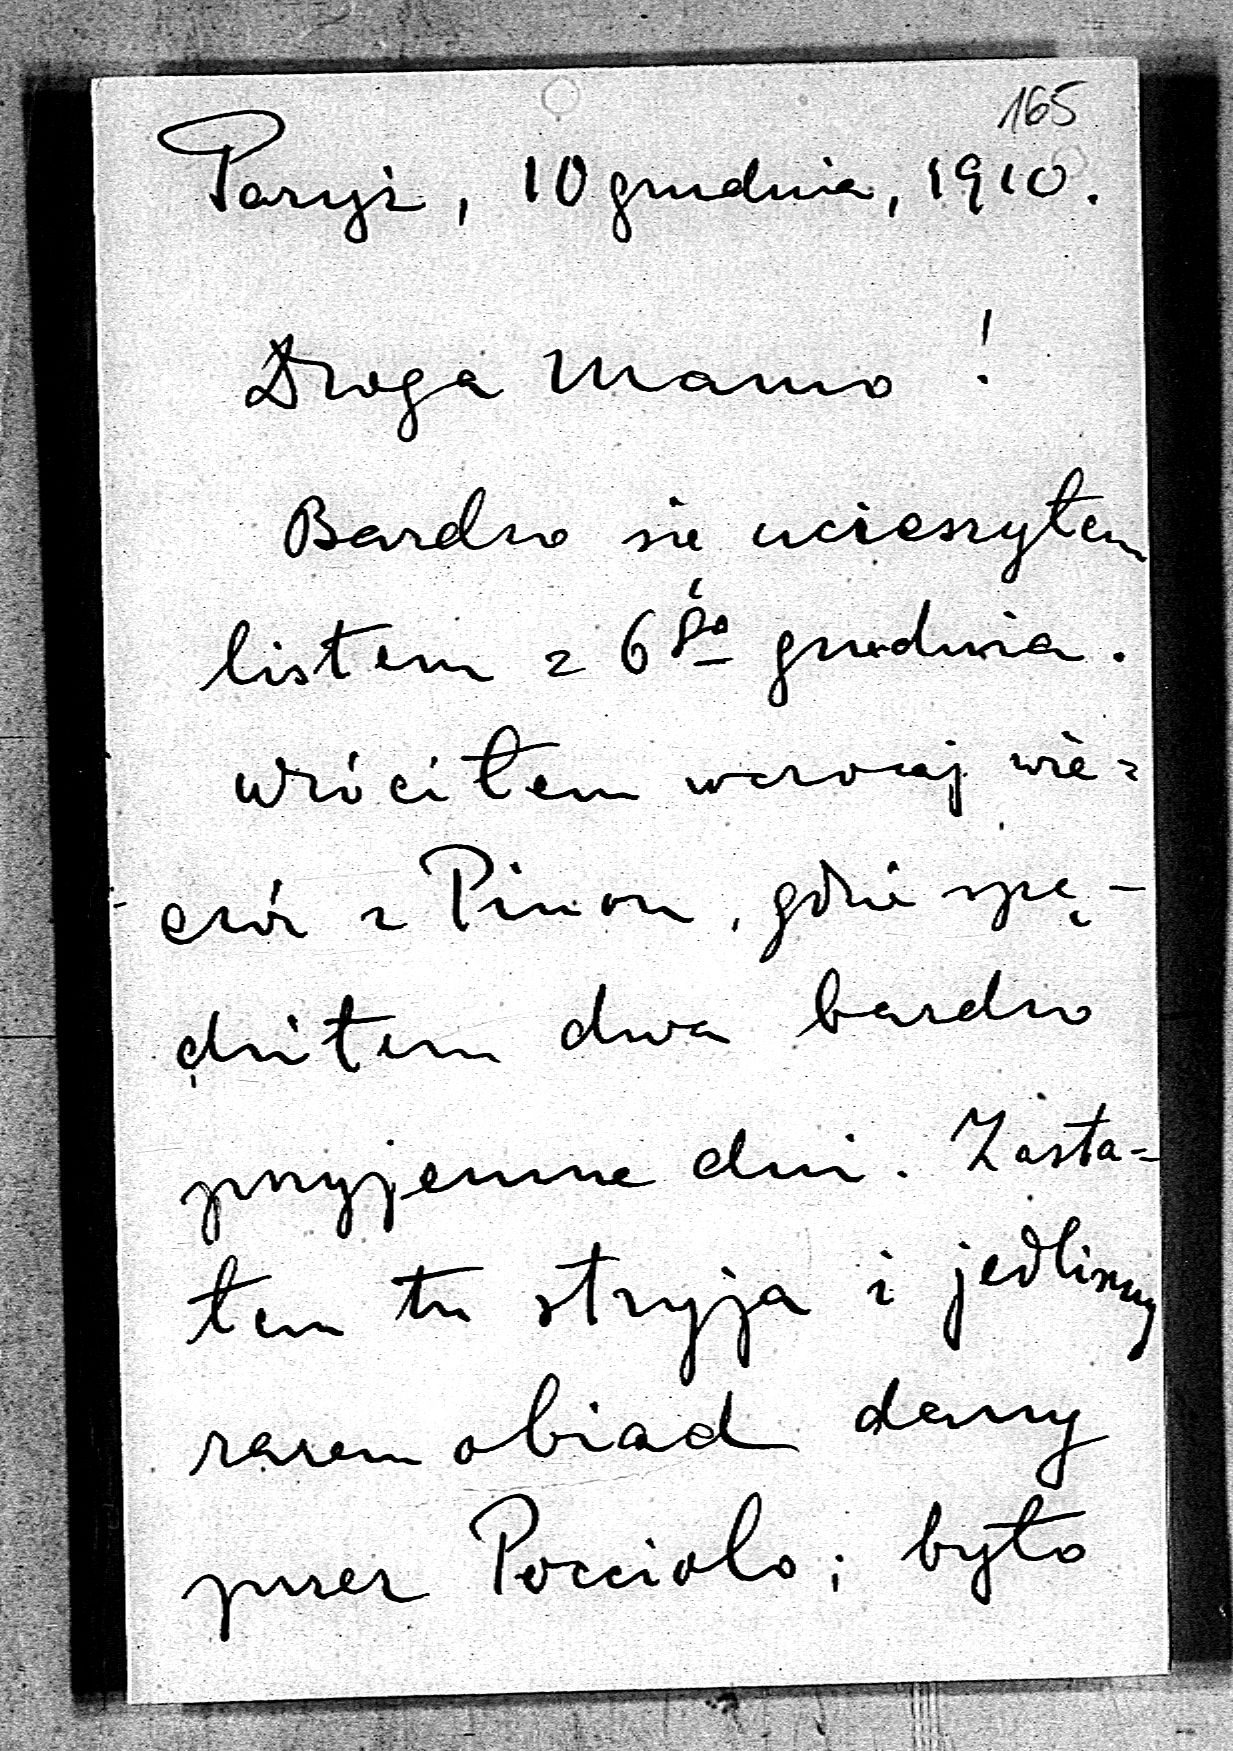 165
Paryż, 10 grudnia, 1910.
Droga Mamo!
Bardzo się ucieszyłem
listem z 6śo grudnia.
Wróciłem wczoraj wie=
czór z Pinon, gdzie spę-
dziłem dwa bardzo
przyjemne dni. Zasta=
łem tu stryja i jedliśmy
razem obiad dany
przez Pocciolo; było